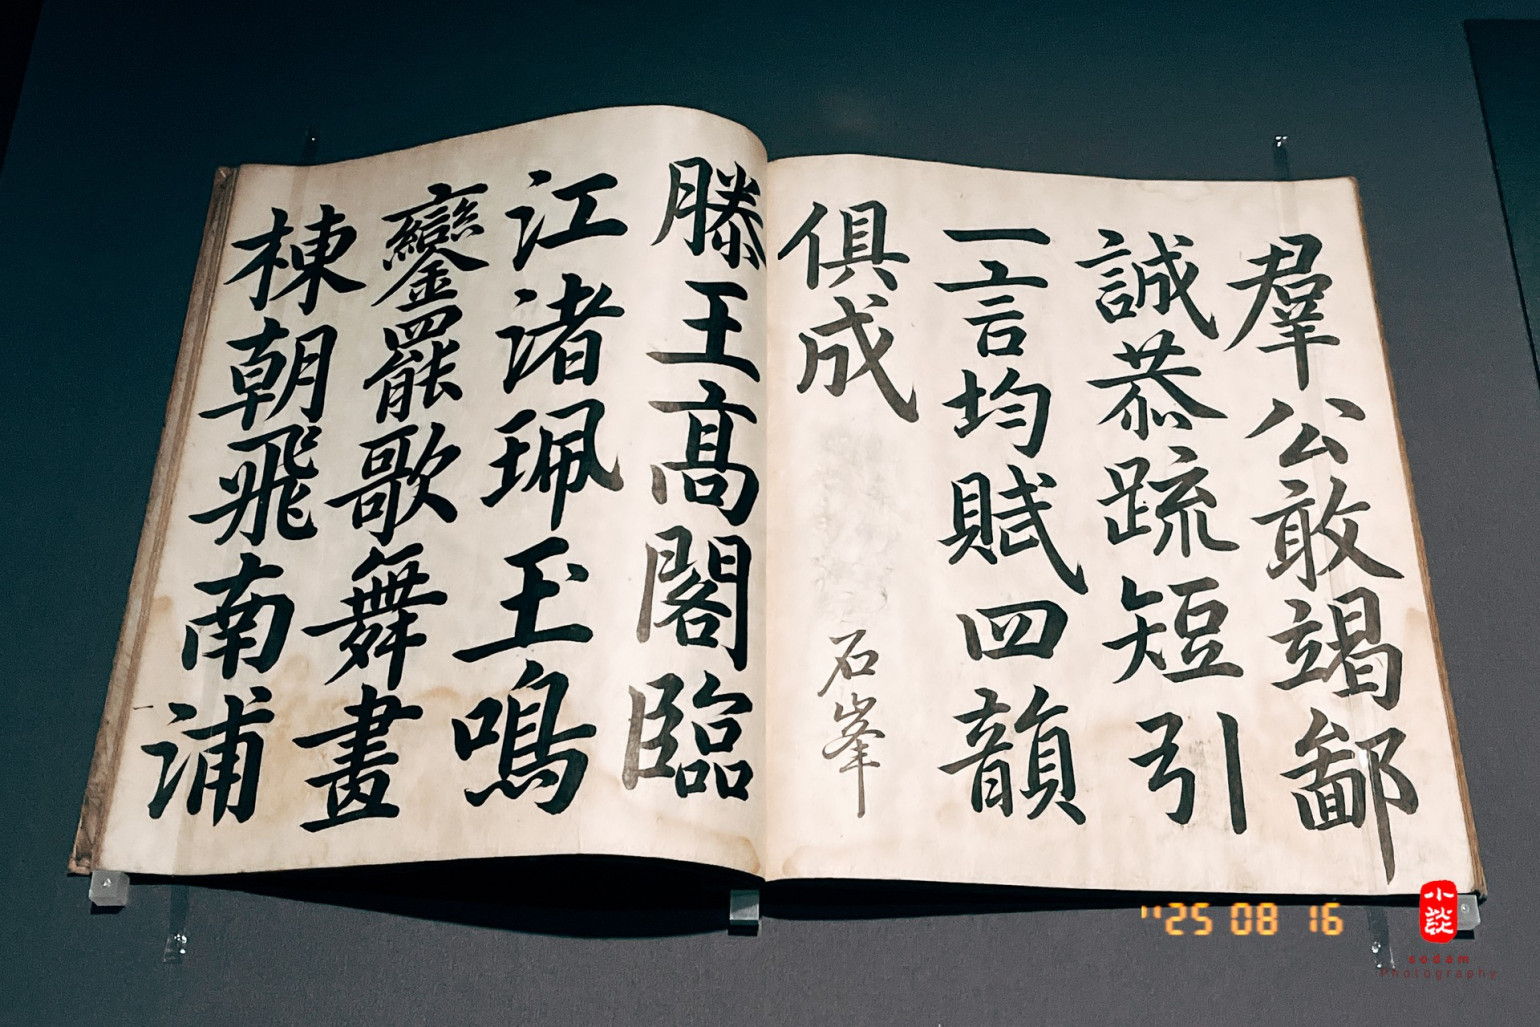 羣公敢竭鄙
誠恭疏短引
一言均賦四韻
俱成
石峯
滕王高閣臨
江渚珮玉鳴
鑾罷歌舞畫
棟朝飛南浦
'25 08 16
小談
sodam
Photography